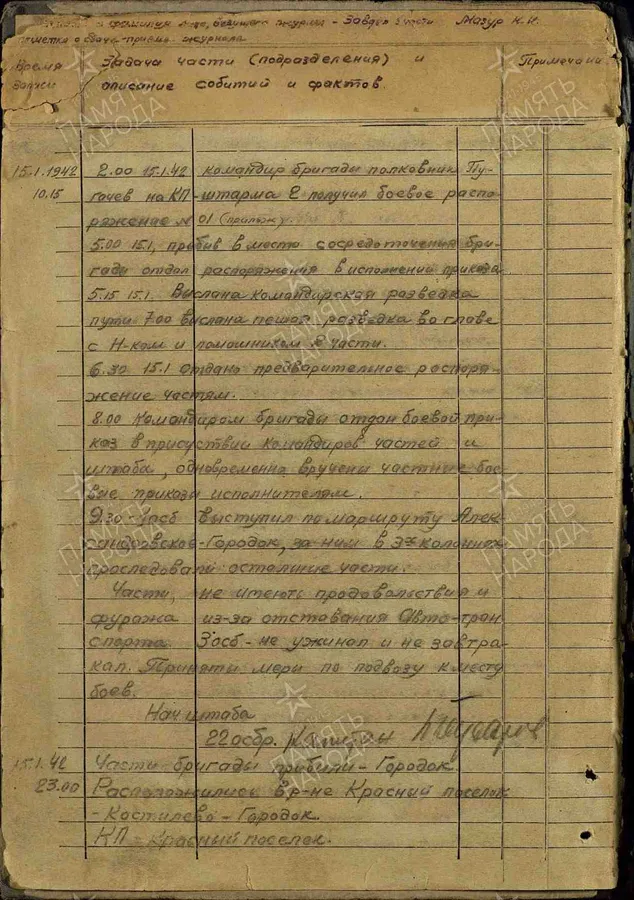 и фамилия лица, ведущего журнал - Завдел 5 части Мазур К.И.
отметка о сдаче-приеме журнала
Время Задача части (подразделения) и Примечани
записи описание событий и фактов.
15.1.1942 2.00 15.1.42 командир бригады полковник Пу-
10.15 гачев на КП-штарма 2 получил боевое распо-
ряжение №01 (прилож)
5.00 15.1, прибыв в место сосредоточения бри-
гады отдал распоряжения в исполнении приказа
5.15 15.1. Выслана командирская разведка
пути 7.00 выслана пешая разведка во главе
с Н-ком и помошником 2 части.
6.30 15.1 отдано предварительное распоря-
жение частям.
8.00 Командиром бригады отдан боевой при-
каз в присуствии командиров частей и
штаба, одновременно вручены частные бое-
вые приказы исполнителям.
9.30 - 1осб выступил по маршруту Алек-
сандровское-Городок, за ним в 3х колоннах
проследовали остальные части.
Части, не имеють продовольствия и
фуража из-за отставания Авто-тран-
спорта 3осб-не ужинал и не завтра-
кал. Приняты меры по подвозу к месту
боев.
Нач штаба
22 осбр. Капитан
15.1.42 Части бригады прибыли-Городок.
23.00 Расположились в р-не Красный поселок
-Костилево-Городок.
КП-Красный поселок.